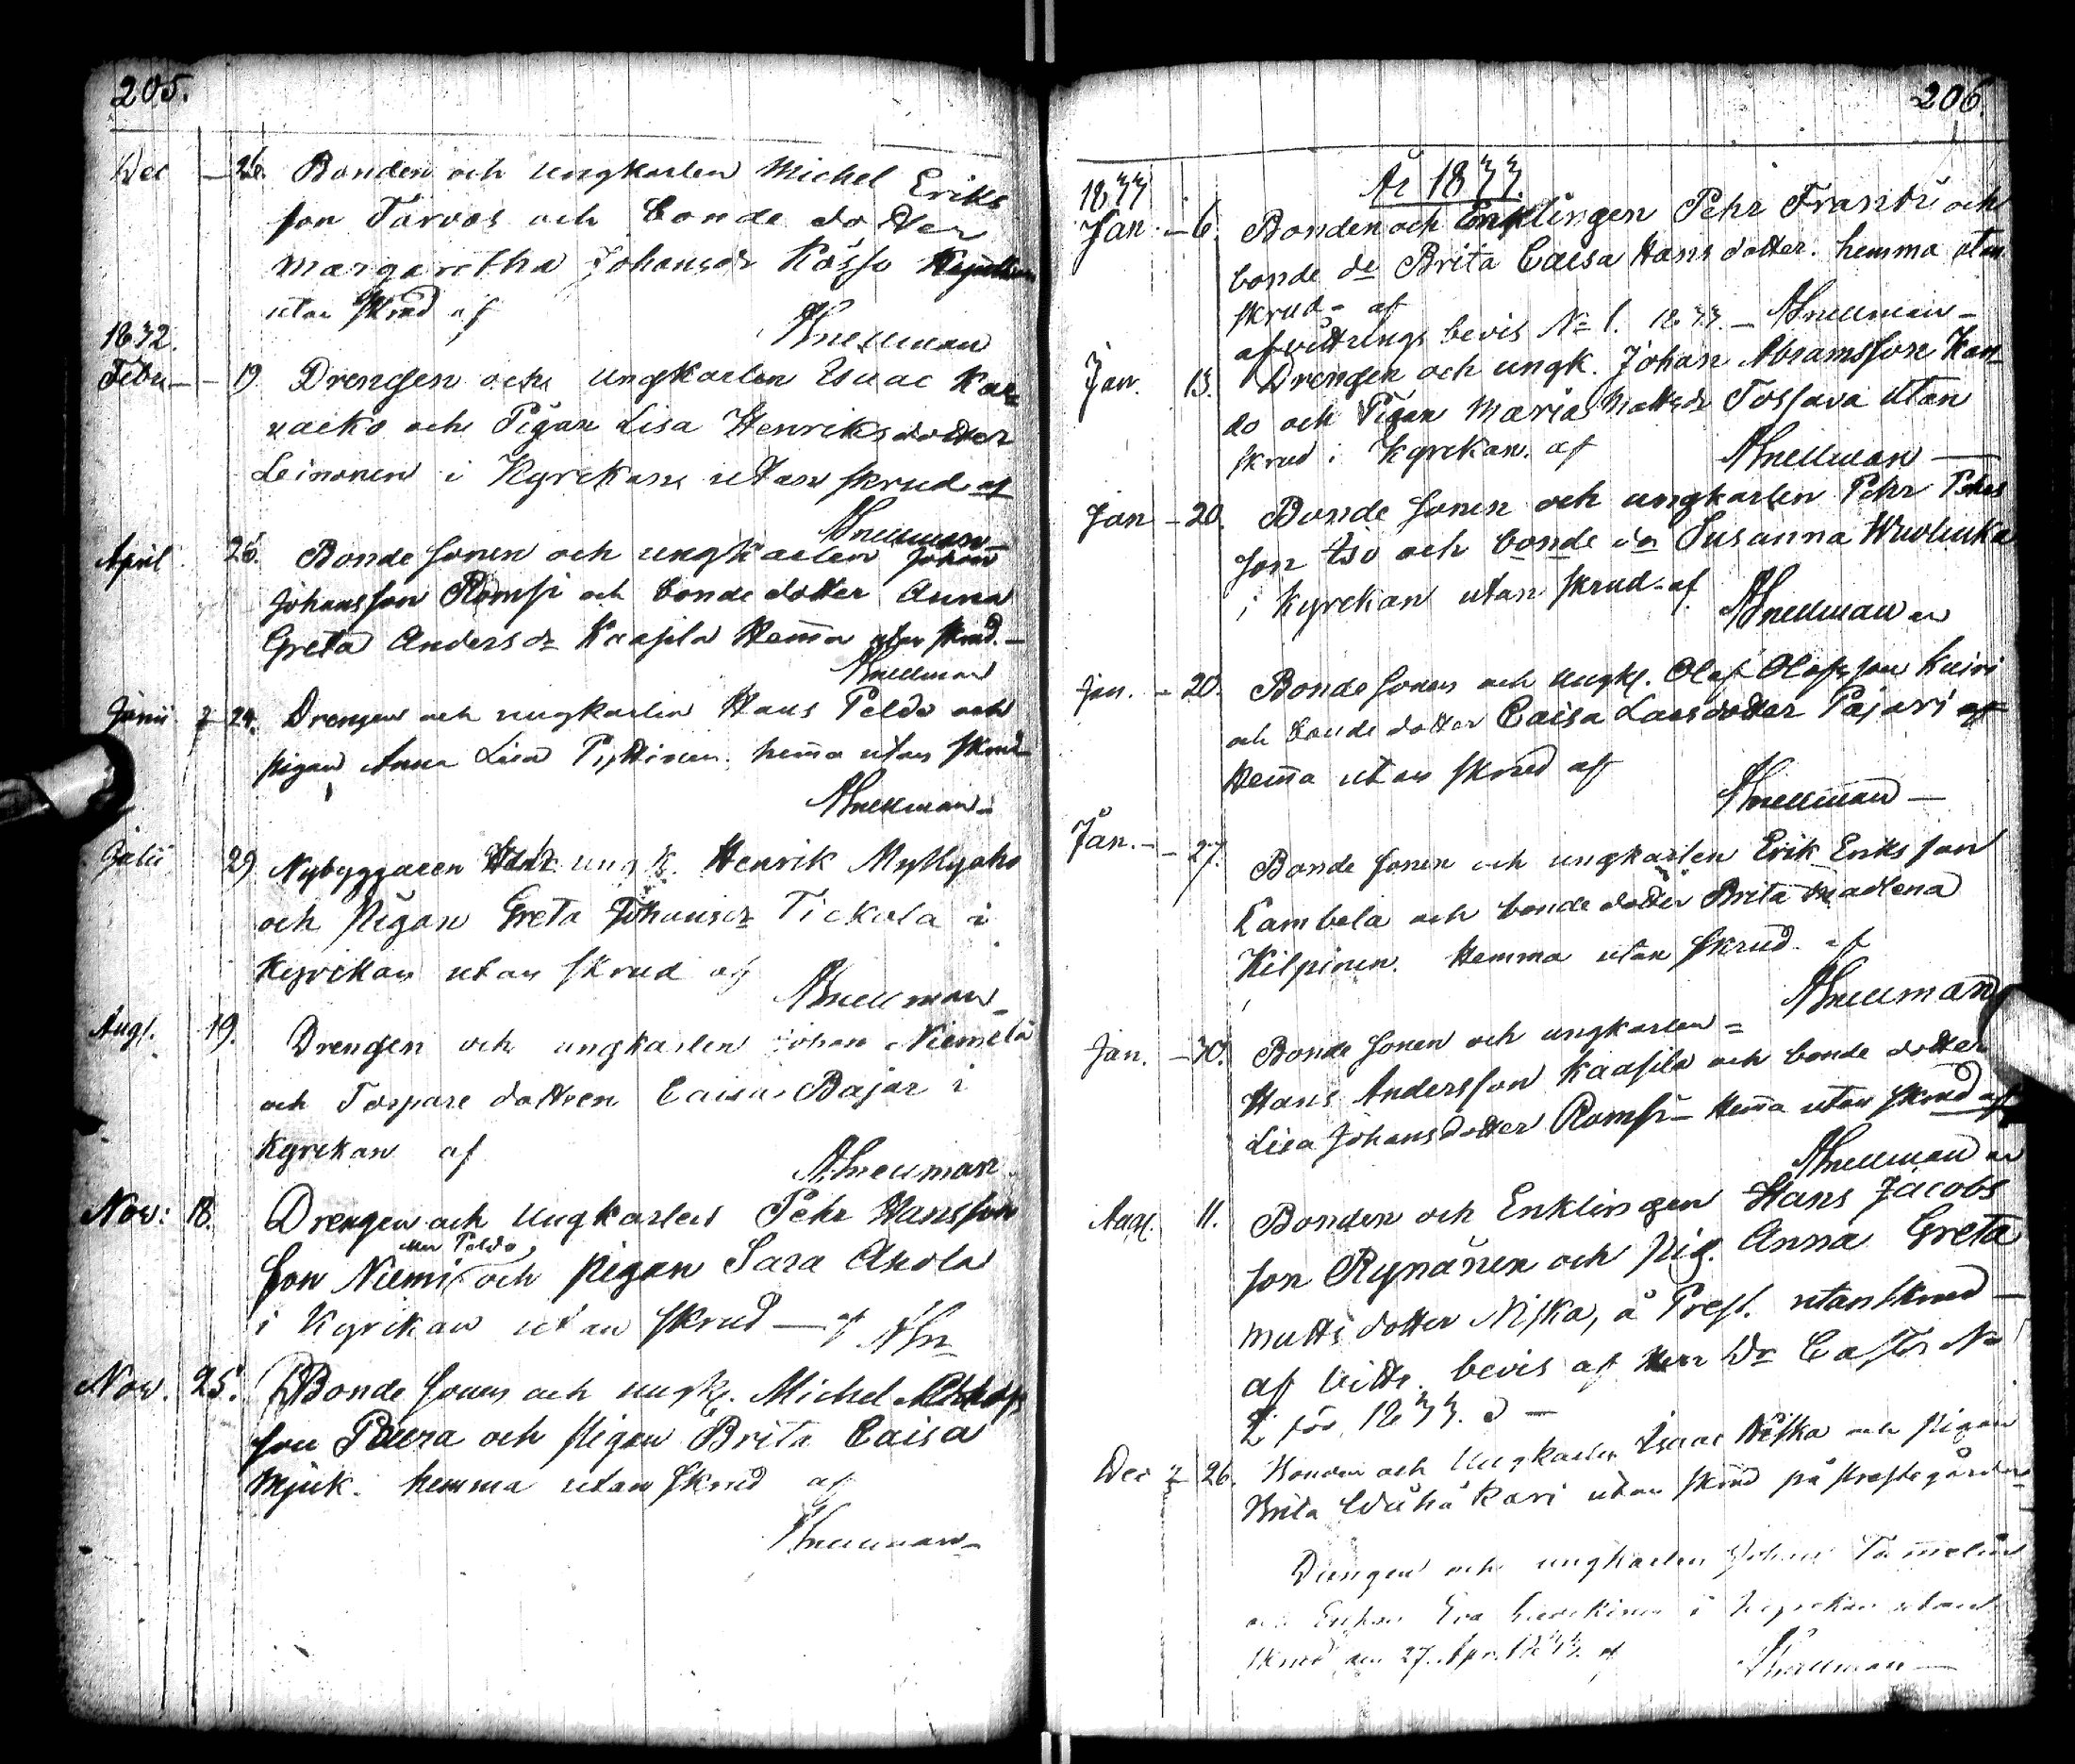 205.
Dec — 26. Bonden och ungkarlen Michel Eriks
son Tarvos och bonde dotter
Margaretha Johansdr Kösso
utan skrud af
Snellman
1832.
Febr — 19 Drengen och ungkarlen Isaac Kar
vaiko och Pigan Lisa Henriksdotter
Leinonen i Kyrckan utan skrud af
Snellman
April 26. Bonde sonen och ungkarlen Johan
Johansson Romsi och bonde dotter Anna
Greta Andersdr Kaasila Hem̄a utan skrud. —
Snellman
Junii 24. Drengen och ungkarlen Hans Peldo och
pigan Anna Lisa Pyttinen. hem̄a utan skrud
Snellman
Julii 29 Nybyggaren ungk. Henrik Myllyaho
och pigan Greta Johansdr Tickala i
Kyrckan utan skrud af
Snellman
Aug. 19. Drengen och ungkarlen Johan Niemelä
och Torpare dottren Caisa Bajar i
Kyrckan af
A Snellman
Nov: 18. Drengen och ungkarlen Pehr Hansson
eller Peldo
son Niemi och pigan Sara Ahola
i Kyrckan utan skrud — af ASn
Nov. 25. Bonde sonen och ungk. Michel
son Paura och pigan Brita Caisa
Mjuk. hemma utan skrud af
Snellman
206.
År 1833.
1833
Jan — 6. Bonden och Enklingen Pehr Frantsi och
bonde dr Brita Caisa Hansdotter. hemma utan
skrud - af
afvittrings bevis No 1. 1833. — Snellman —
Jan. 13. Drengen och ungk. Johan Abramsson Kan
do och Pigan Maria Mattsdr Tossava utan
skrud i Kyrckan. af Snellman —
Jan — 20. Bonde sonen och ungkarlen Pehr Pehrs
son Iso och bonde dr Susanna Wuolucka
i Kyrckan utan skrud. af
Snellman
Jan. — 20. Bonde sonen och ungk. Olof Olofsson Kuiri
och bonde dotter Caisa Larsdotter Pajari af
Hem̄a utan skrud af
Snellman —
Jan. — 27. Bonde sonen och ungkarlen Erik Eriksson
Lambela och bonde dotter Brita Madlena
Kilpinen. Hemma utan skrud. af
Snellman
Jan. — 30. Bonde sonen och ungkarlen =
Hans Andersson Kaasila och bonde dotter
Lisa Johansdotter Romsi — Hem̄a utan skrud af
Snellman
Aug. 11. Bonden och Enklingen Hans Jacobs
son Rynänen och pig. Anna Greta
Matts dotter Niska, å Prest. utan skrud —
af vittr. bevis af Herr Dr No
2 för 1833. —
Dec 26. Bonden och Ungkarlen Isaac Niska och pigan
Brita Wähä Kari utan skrud på prestegården
Drengen och ungkarlen Johan Tammelin
Enkan Eva i Kyrckan utan
skrud den 27. Apr. 1833. af Snellman —